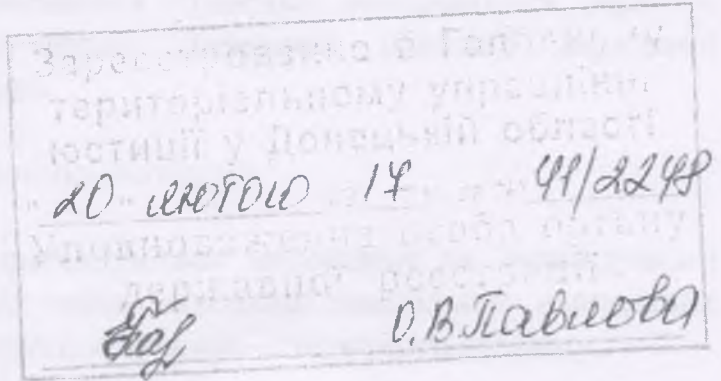 Зареєстровано в Головному
територіальному управлінні
юстиції у Донецькій області
" 20 " лютого 17 41/2248
Уповноважена особа органу
державної реєстрації
О.В Павлова